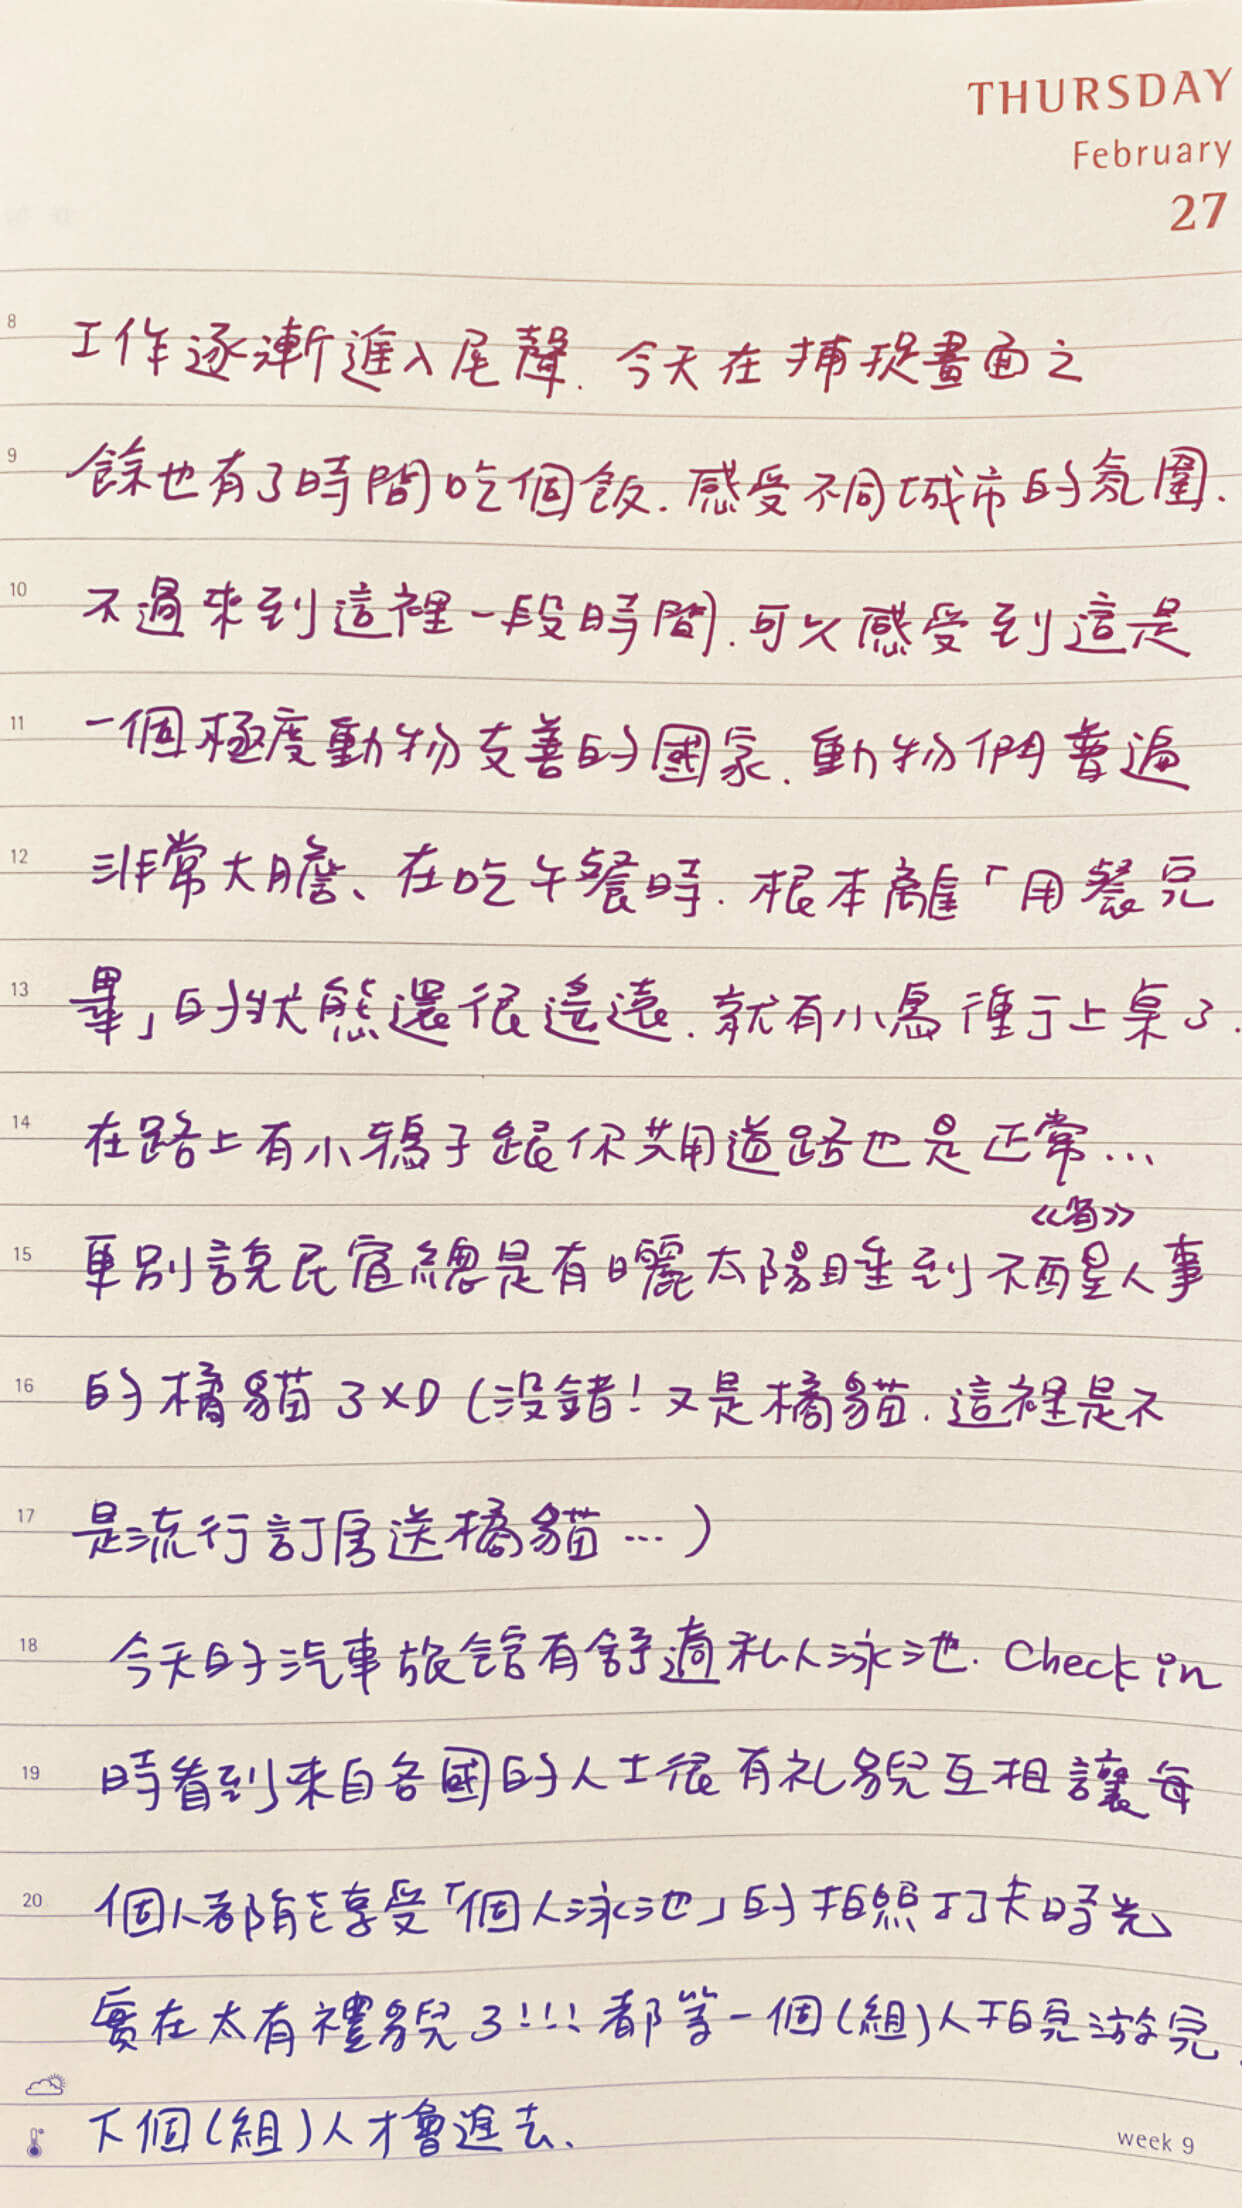 THURSDAY
February
27
8 工作逐漸進入尾聲.今天在捕捉畫面之
9 餘也有了時間吃個飯.感受不同城市的氛圍.
10 不過來到這裡一段時間.可以感受到這是
11 一個極度動物友善的國家.動物們普遍
12 非常大膽、在吃午餐時.根本離「用餐完
13 畢」的狀態還很遙遠.就有小鳥衝上桌了.
14 在路上有小鴉子跟你共用道路也是正常...
《省》
15 更別說民宿總是有曬太陽睡到不醒人事
16 的橘貓了XD (沒錯!又是橘貓.這裡是不
17 是流行訂房送橘貓...)
18 今天的汽車旅館有舒適私人泳池.Check in
19 時看到來自各國的人士很有礼貌互相讓每
20 個人都能享受「個人泳池」的拍照打卡時光
實在太有禮貌了!!!都等一個(組)人拍完游完.
下個(組)人才會進去.
week 9